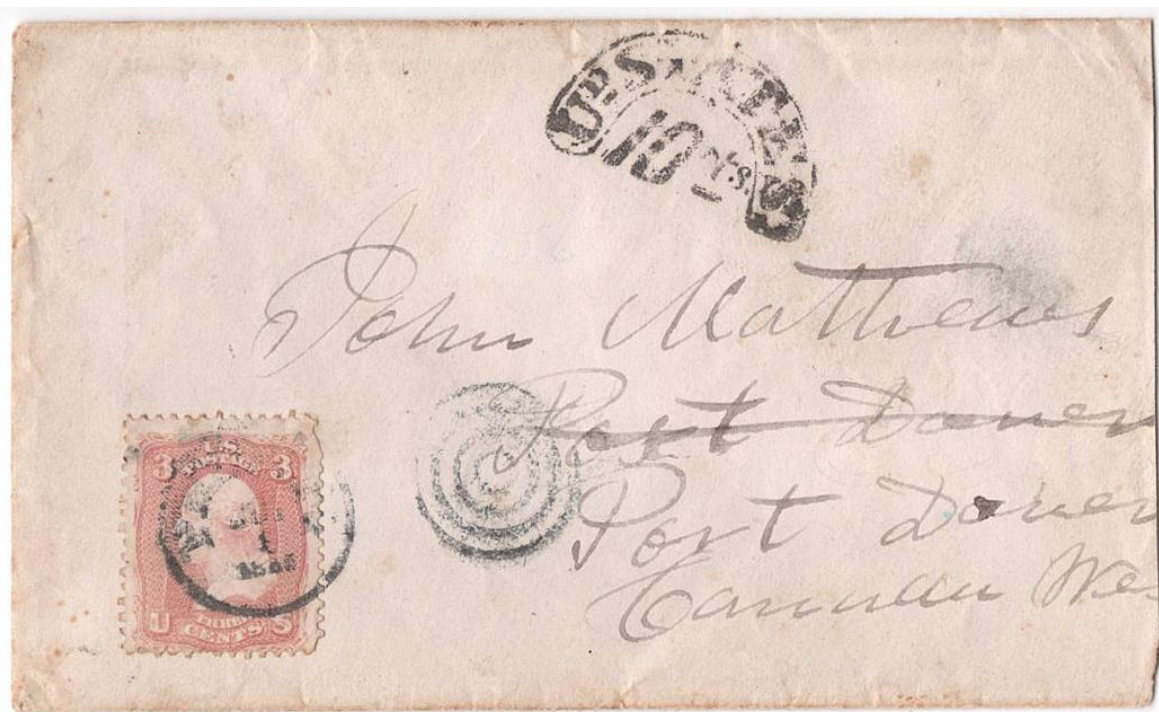 Uᴅ STATES
10 cts.
John Mathews
Port Dover
Port Dover
3 3
U.S.
POSTAGE
THREE
U CENTS S